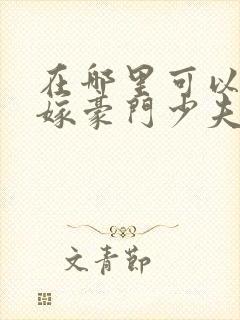 在哪里可以
嫁豪门少夫
文青節